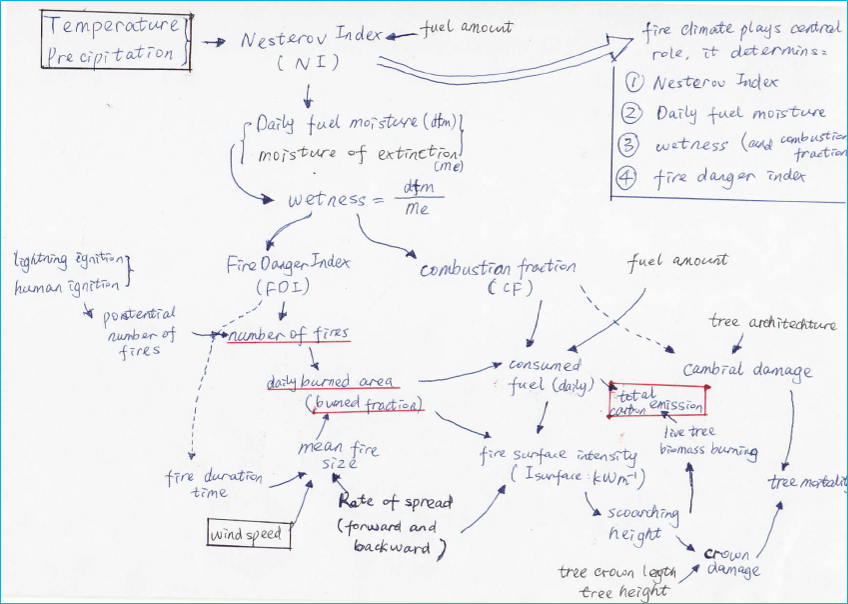 Temperature
Precipitation
Nesterov Index
(NI)
fuel amount
fire climate plays central
role, it determins:
① Nesterov Index
② Daily fuel moisture
③ wetness (and combustion
fraction)
④ fire danger index
Daily fuel moisture (dfm)
moisture of extinction
(me)
wetness = dfm / me
lightning ignition
human ignition
Fire Danger Index
(FDI)
combustion fraction
(CF)
fuel amount
postential
number of
fires
number of fires
tree architechture
daily burned area
(buned fraction)
consumed
fuel (daily)
total
carbon emission
Cambial damage
live tree
biomass burning
mean fire
size
fire surface intensity
(Isurface: kWm⁻¹)
fire duration
time
tree mortality
Rate of spread
(forward and
backward)
scoarching
height
wind speed
crown
damage
tree crown legth
tree height